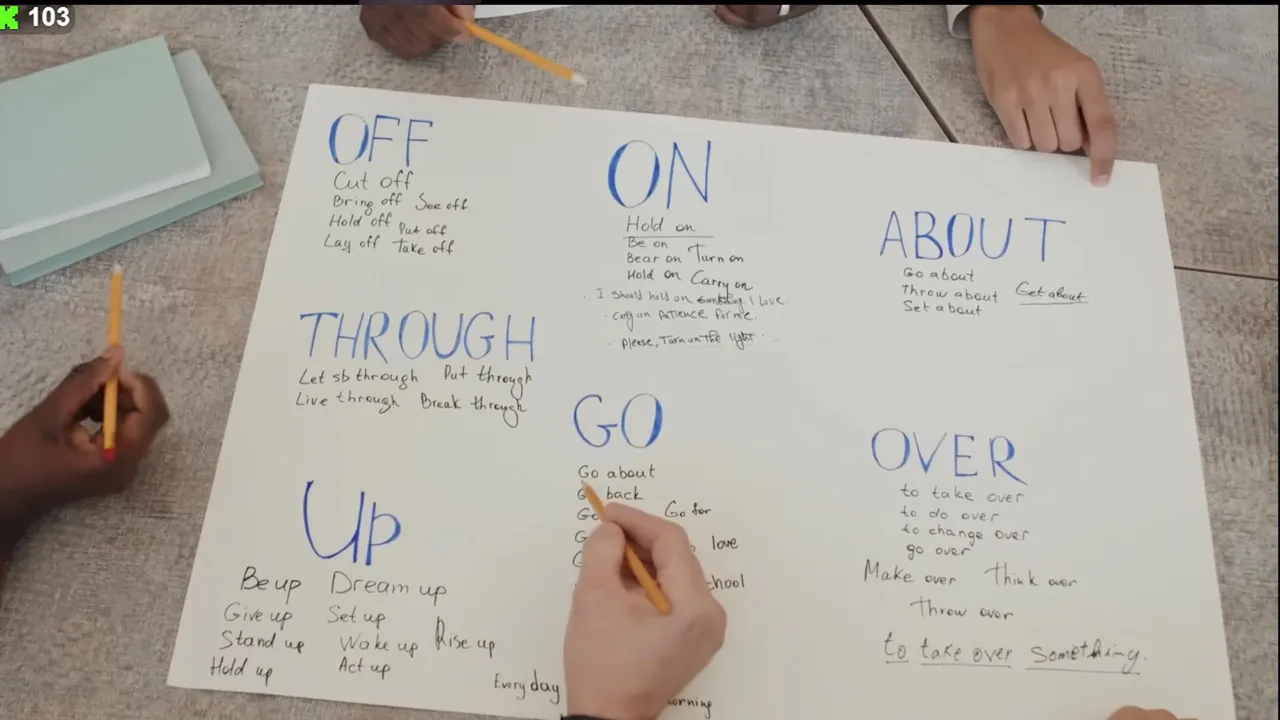 K 103
OFF
Cut off
Bring off See off
Hold off Put off
Lay off Take off
ON
Hold on
Be on
Bear on Turn on
Hold on Carry on
. I should hold on something I love.
. on patience for me.
. Please, Turn on the light
ABOUT
Go about
Throw about Get about
Set about
THROUGH
Let sb through Put through
Live through Break through
GO
Go about
back
Go for
love
OVER
to take over
to do over
to change over
go over
Make over Think over
Throw over
to take over something.
UP
Be up Dream up
Give up Set up
Stand up Wake up Rise up
Hold up Act up
Every day